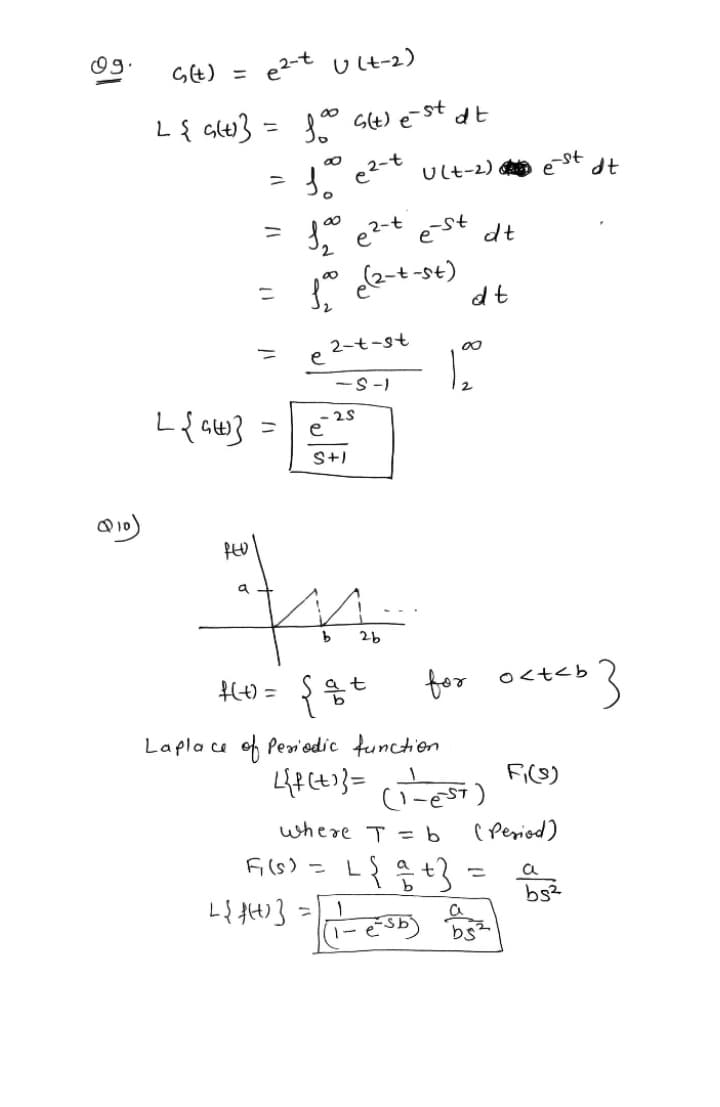 Q9. G(t) = e^{2-t} U(t-2)
L{G(t)} = ∫_0^∞ G(t) e^{-st} dt
= ∫_0^∞ e^{2-t} U(t-2) e^{-st} dt
= ∫_2^∞ e^{2-t} e^{-st} dt
= ∫_2^∞ e^{(2-t-st)} dt
= e^{2-t-st} / (-s-1) |_2^∞
L{G(t)} = e^{-2s} / (s+1)
Q10)
f(t)
a
b 2b ....
f(t) = { a/b t for 0<t<b }
Laplace of Periodic function
L{f(t)} = 1/(1-e^{-sT}) F₁(s)
where T = b (Period)
F₁(s) = L{a/b t} = a/bs²
L{f(t)} = 1/(1-e^{-sb}) a/bs²